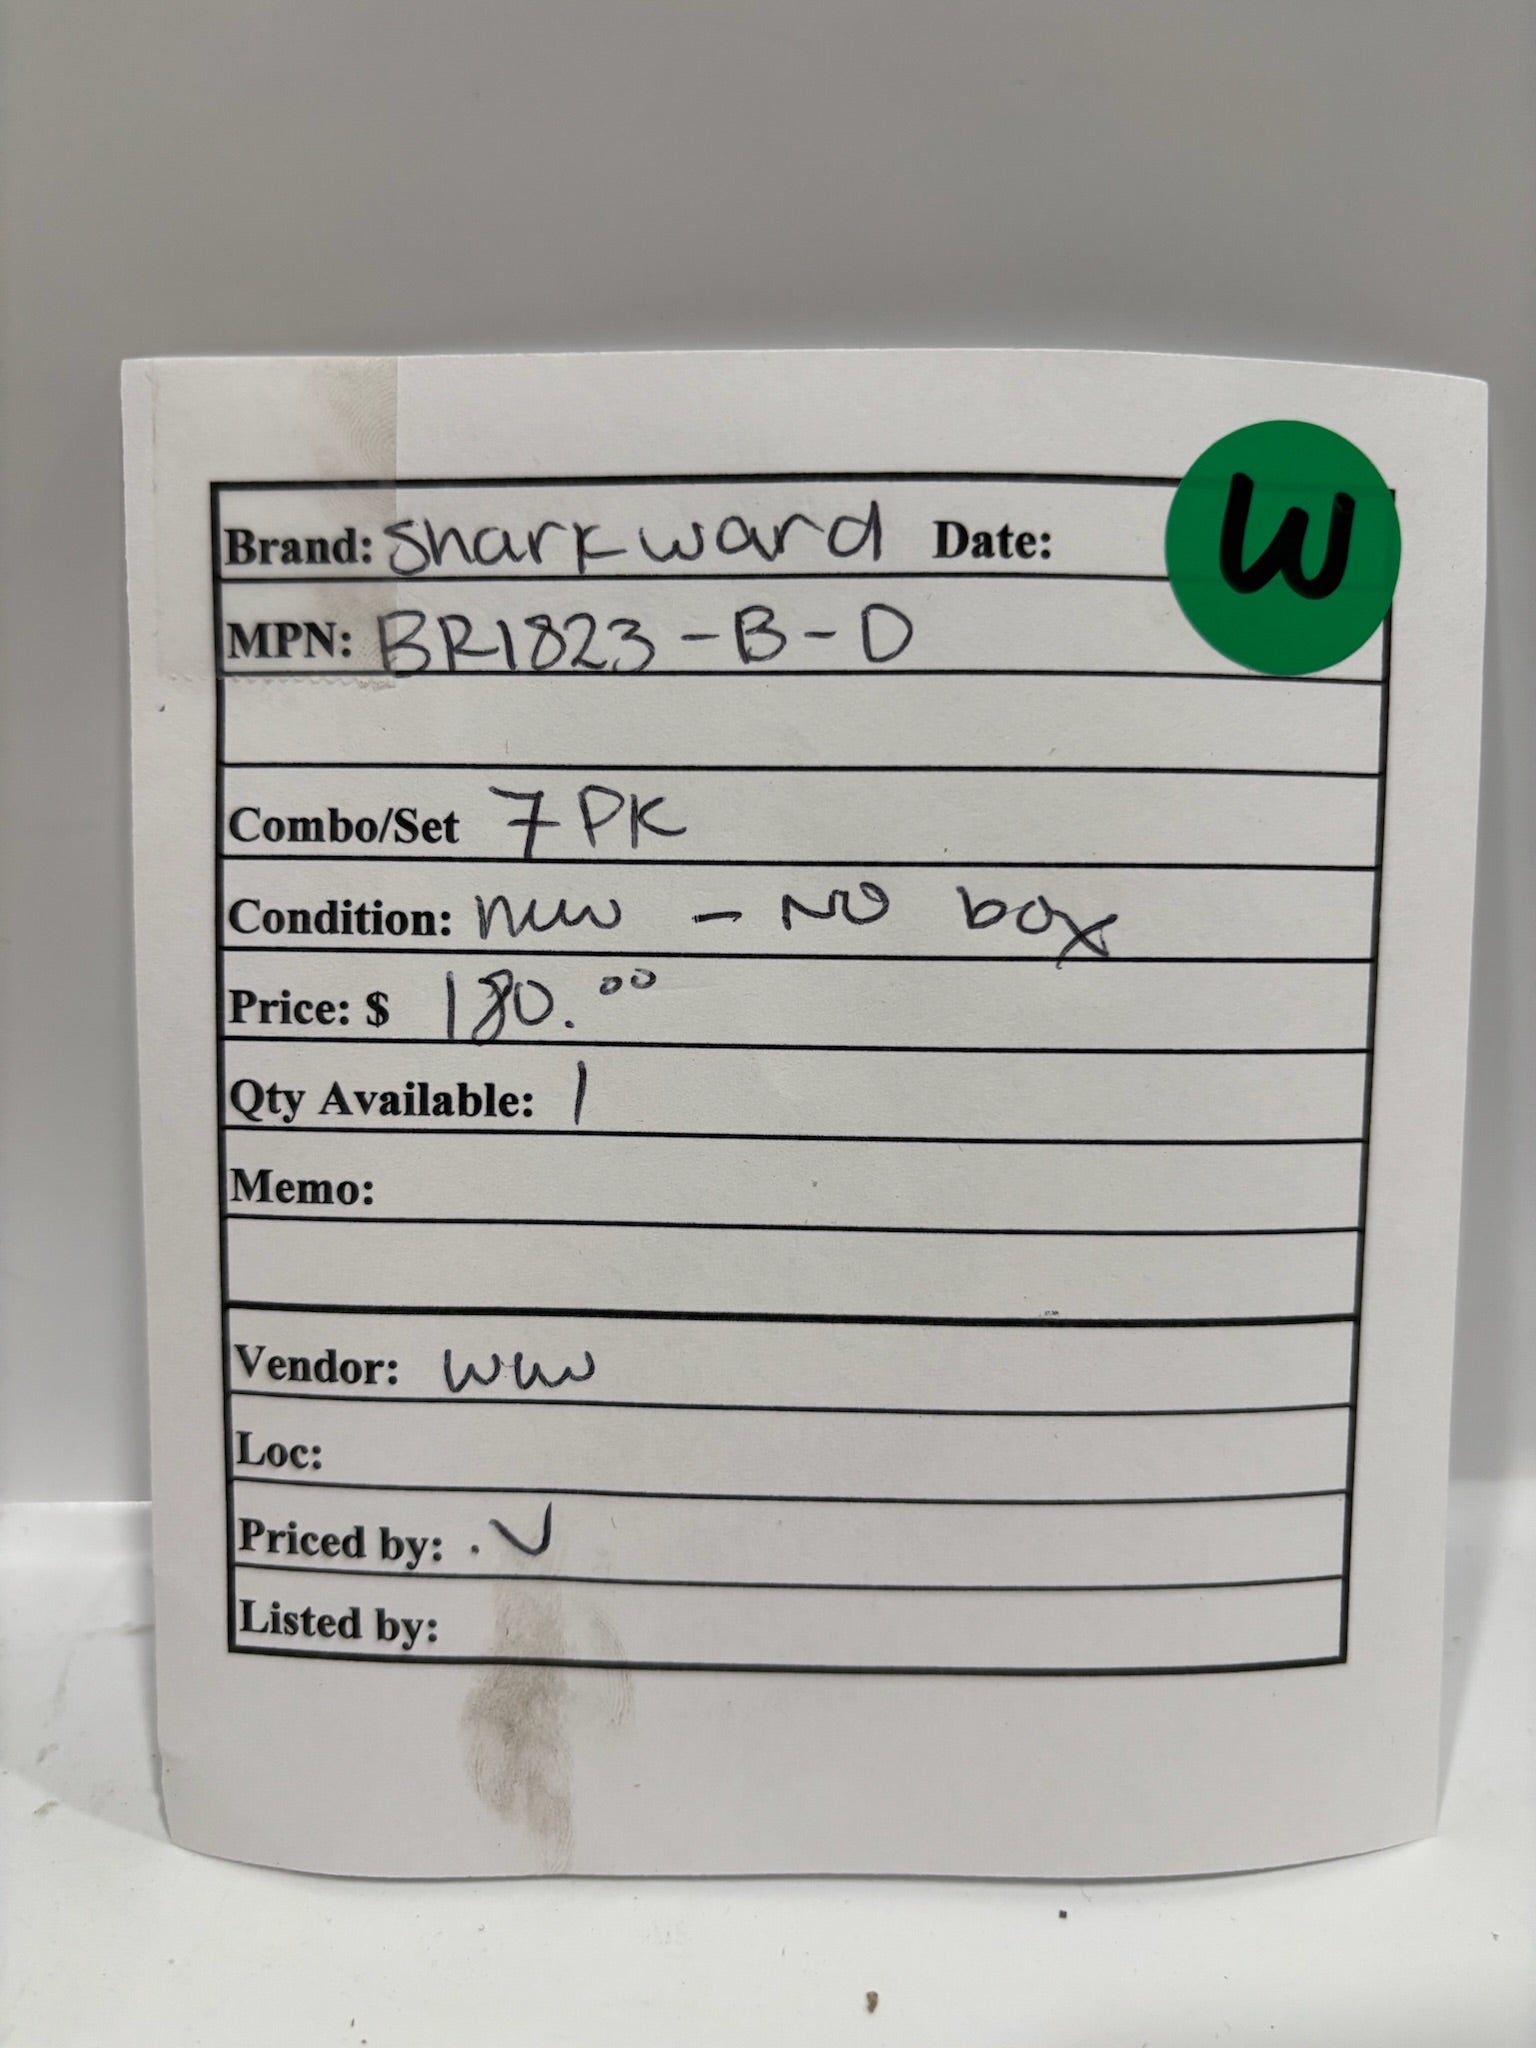 Brand: Sharkward Date: W
MPN: BR1823-B-D
Combo/Set 7 PK
Condition: new - NO box
Price: $ 180.00
Qty Available: 1
Memo:
Vendor: WW
Loc:
Priced by: .V
Listed by: